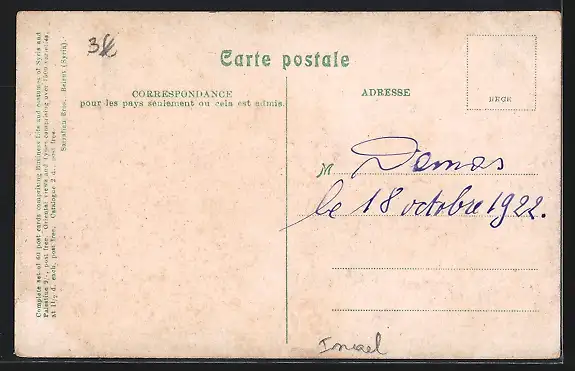 Complete set of 60 post cards comprising Business life and costumes of Syria and
Palestine 9/-, post free. Oriental views and types comprising over 1500 varieties,
at 1 1/2 d. each, post free. Catalogue 2 d., post free.
Sarrafian Bros., Beirut (Syria).
Carte postale
CORRESPONDANCE
pour les pays seulement ou cela est admis.
ADRESSE
M Damas
le 18 octobre 1922.
Israel